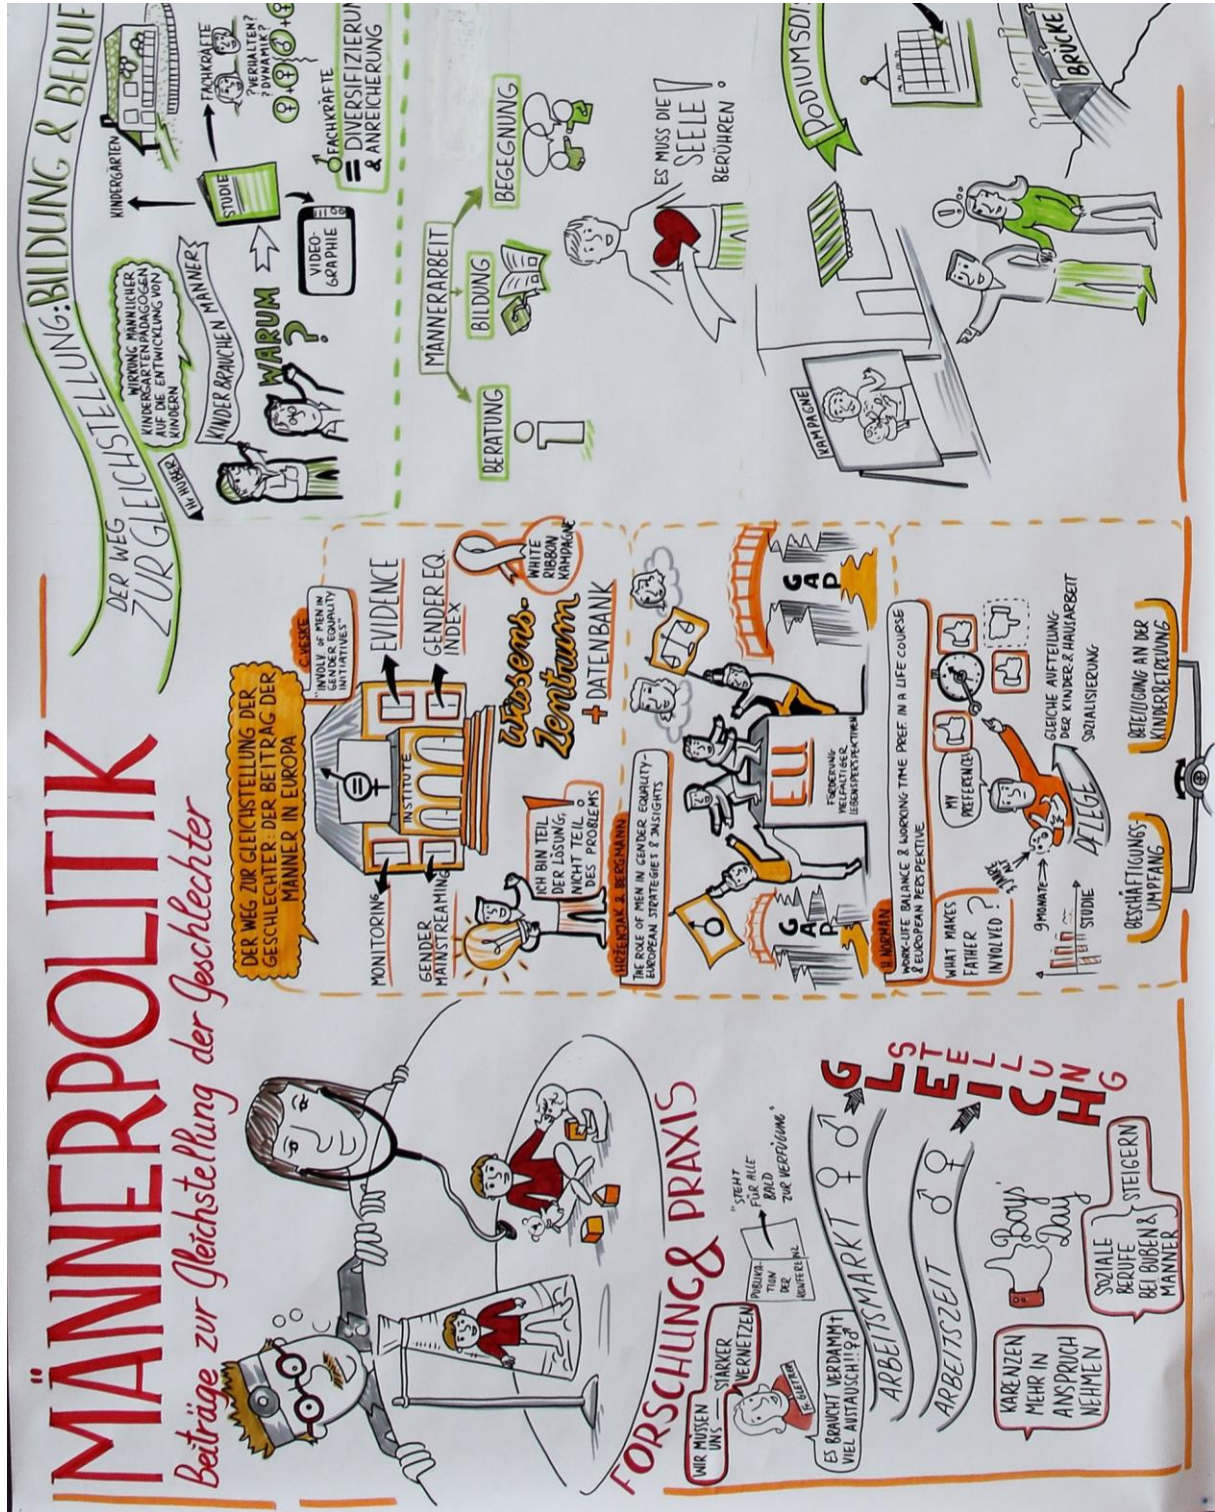 MÄNNERPOLITIK
Beiträge zur Gleichstellung der Geschlechter
FORSCHUNG & PRAXIS
WIR MÜSSEN
UNS
STÄRKER
VERNETZEN
PUBLIKA-
TION
DER
KONFERENZ
"STEHT
FÜR ALLE
BALD
ZUR VERFÜGUNG"
ES BRAUCHT VERDAMMT
VIEL AUSTAUSCH!!
ARBEITSMARKT
ARBEITSZEIT
GLEICH
STELLUNG
KARENZEN
MEHR IN
ANSPRUCH
NEHMEN
Boys'
Day
SOZIALE
BERUFE
BEI BUBEN &
MÄNNER
STEIGERN
DER WEG ZUR GLEICHSTELLUNG DER
GESCHLECHTER: DER BEITRAG DER
MÄNNER IN EUROPA
C. VESKE
"INVOLV. OF MEN IN
GENDER EQUALITY
INITIATIVES"
INSTITUTE
MONITORING
GENDER
MAINSTREAMING
EVIDENCE
GENDER EQ.
INDEX
ICH BIN TEIL
DER LÖSUNG,
NICHT TEIL
DES PROBLEMS
Wissens-
Zentrum
+ DATENBANK
WHITE
RIBBON
KAMPAGNE
HRŽENJAK & BERGMANN
THE ROLE OF MEN IN GENDER EQUALITY-
EUROPEAN STRATEGIES & INSIGHTS
GAP
EU
FÖRDERUNG
VIELFÄLTIGER
LEBENSPERSPEKTIVEN
GAP
H. NORMAN
WORK-LIFE BALANCE & WORKING TIME PREF. IN A LIFE COURSE
& EUROPEAN PERSPEKTIVE
WHAT MAKES
FATHER
INVOLVED?
MY
PREFERENCES
9 MONATE
3 JAHRE
ALT
STUDIE
PFLEGE
GLEICHE AUFTEILUNG
DER KINDER & HAUSARBEIT
SOZIALISIERUNG
BESCHÄFTIGUNGS-
UMPFANG
BETEILIGUNG AN DER
KINDERBETREUUNG
DER WEG
ZUR GLEICHSTELLUNG: BILDUNG & BERUF
Hr HUBER
WIRKUNG MÄNNLICHER
KINDERGARTENPÄDAGOGEN
AUF DIE ENTWICKLUNG VON
KINDERN
KINDER BRAUCHEN MÄNNER
WARUM
?
KINDERGÄRTEN
STUDIE
VIDEO-
GRAPHIE
FACHKRÄFTE
?VERHALTEN?
?DYNAMIK?
FACHKRÄFTE
= DIVERSIFIZIERUN
& ANREICHERUNG
MÄNNERARBEIT
BERATUNG
BILDUNG
BEGEGNUNG
ES MUSS DIE
SEELE!
BERÜHREN
KAMPAGNE
PODIUMSDIS
BRÜCKE